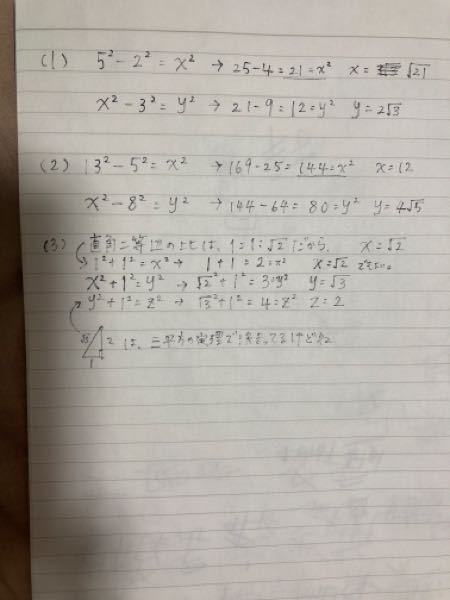 (1) 5² - 2² = x² → 25 - 4 = 21 = x² x = √21
x² - 3² = y² → 21 - 9 = 12 = y² y = 2√3
(2) 13² - 5² = x² → 169 - 25 = 144 = x² x = 12
x² - 8² = y² → 144 - 64 = 80 = y² y = 4√5
(3) 直角二等辺の比は、1:1:√2だから、 x = √2
1² + 1² = x² → 1 + 1 = 2 = x² x = √2
x² + 1² = y² → √2² + 1² = 3 = y² y = √3
y² + 1² = z² → √3² + 1² = 4 = z² z = 2
√3 2 は、三平方の定理で
1